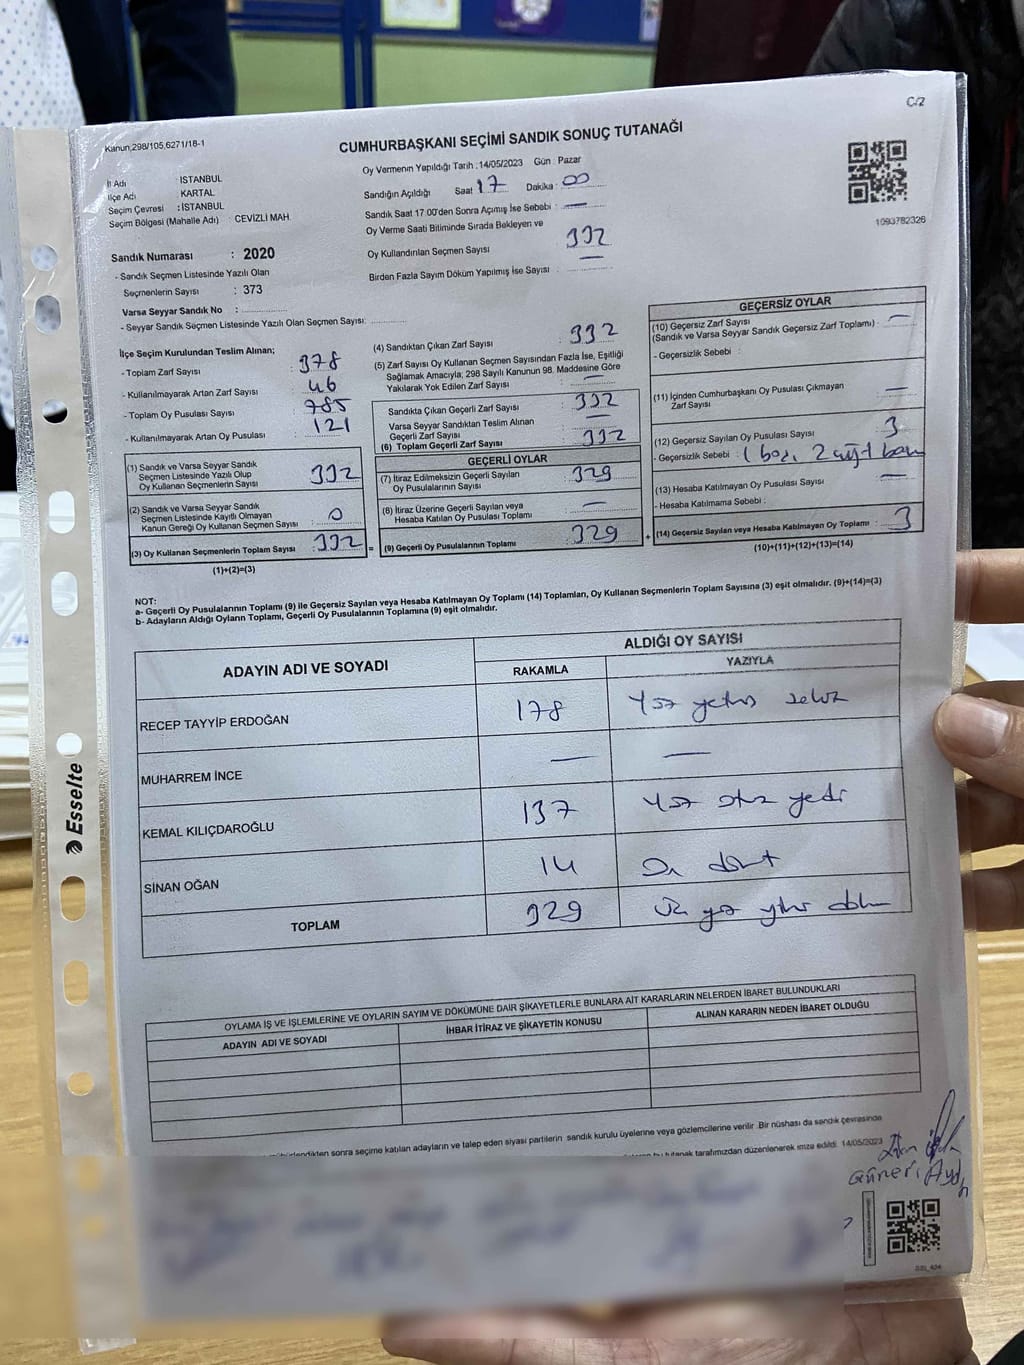 C/2
Kanun,298/105,6271/18-1
CUMHURBAŞKANI SEÇİMİ SANDIK SONUÇ TUTANAĞI
İl Adı : İSTANBUL
İlçe Adı : KARTAL
Seçim Çevresi : İSTANBUL
Seçim Bölgesi (Mahalle Adı) : CEVİZLİ MAH.
Oy Vermenin Yapıldığı Tarih : 14/05/2023 Gün : Pazar
Sandığın Açıldığı Saat 17 Dakika : 00
Sandık Saat 17.00'den Sonra Açmış İse Sebebi : —
Oy Verme Saati Bitiminde Sırada Bekleyen ve
Oy Kullandırılan Seçmen Sayısı 332
Birden Fazla Sayım Döküm Yapılmış İse Sayısı —
1093782326
Sandık Numarası : 2020
- Sandık Seçmen Listesinde Yazılı Olan
Seçmenlerin Sayısı : 373
Varsa Seyyar Sandık No :
- Seyyar Sandık Seçmen Listesinde Yazılı Olan Seçmen Sayısı:
İlçe Seçim Kurulundan Teslim Alınan;
- Toplam Zarf Sayısı : 378
- Kullanılmayarak Artan Zarf Sayısı : 46
- Toplam Oy Pusulası Sayısı : 785
- Kullanılmayarak Artan Oy Pusulası : 121
(1) Sandık ve Varsa Seyyar Sandık
Seçmen Listesinde Yazılı Olup
Oy Kullanan Seçmenlerin Sayısı : 332
(2) Sandık ve Varsa Seyyar Sandık
Seçmen Listesinde Kayıtlı Olmayan
Kanun Gereği Oy Kullanan Seçmen Sayısı : 0
(3) Oy Kullanan Seçmenlerin Toplam Sayısı : 332
(1)+(2)=(3)
(4) Sandıktan Çıkan Zarf Sayısı : 332
(5) Zarf Sayısı Oy Kullanan Seçmen Sayısından Fazla İse, Eşitliği
Sağlamak Amacıyla; 298 Sayılı Kanunun 98. Maddesine Göre
Yakılarak Yok Edilen Zarf Sayısı : —
Sandıkta Çıkan Geçerli Zarf Sayısı : 332
Varsa Seyyar Sandıktan Teslim Alınan
Geçerli Zarf Sayısı : —
(6) Toplam Geçerli Zarf Sayısı : 332
GEÇERLİ OYLAR
(7) İtiraz Edilmeksizin Geçerli Sayılan
Oy Pusulalarının Sayısı : 329
(8) İtiraz Üzerine Geçerli Sayılan veya
Hesaba Katılan Oy Pusulası Toplamı : —
= (9) Geçerli Oy Pusulalarının Toplamı : 329
GEÇERSİZ OYLAR
(10) Geçersiz Zarf Sayısı
(Sandık ve Varsa Seyyar Sandık Geçersiz Zarf Toplamı) : —
- Geçersizlik Sebebi :
(11) İçinden Cumhurbaşkanı Oy Pusulası Çıkmayan
Zarf Sayısı : —
(12) Geçersiz Sayılan Oy Pusulası Sayısı : 3
- Geçersizlik Sebebi : 1 boş, 2
(13) Hesaba Katılmayan Oy Pusulası Sayısı : —
- Hesaba Katılmama Sebebi :
+ (14) Geçersiz Sayılan veya Hesaba Katılmayan Oy Toplamı : 3
(10)+(11)+(12)+(13)=(14)
NOT:
a- Geçerli Oy Pusulalarının Toplamı (9) ile Geçersiz Sayılan veya Hesaba Katılmayan Oy Toplamı (14) Toplamları, Oy Kullanan Seçmenlerin Toplam Sayısına (3) eşit olmalıdır. (9)+(14)=(3)
b- Adayların Aldığı Oyların Toplamı, Geçerli Oy Pusulalarının Toplamına (9) eşit olmalıdır.
ADAYIN ADI VE SOYADI ALDIĞI OY SAYISI
RAKAMLA YAZIYLA
RECEP TAYYİP ERDOĞAN 178 Yüz yetmiş sekiz
MUHARREM İNCE — —
KEMAL KILIÇDAROĞLU 137 Yüz otuz yedi
SİNAN OĞAN 14 On dört
TOPLAM 329 Üç yüz yirmi dokuz
OYLAMA İŞ VE İŞLEMLERİNE VE OYLARIN SAYIM VE DÖKÜMÜNE DAİR ŞİKAYETLERLE BUNLARA AİT KARARLARIN NELERDEN İBARET BULUNDUKLARI
ADAYIN ADI VE SOYADI İHBAR İTİRAZ VE ŞİKAYETİN KONUSU ALINAN KARARIN NEDEN İBARET OLDUĞU
sonra seçime katılan adayların ve talep eden siyasi partilerin sandık kurulu üyelerine veya gözlemcilerine verilir. Bir nüshası da sandık çevresinde
tutanak tarafımızdan düzenlenerek imza edildi. 14/05/2023
Güneri
Esselte